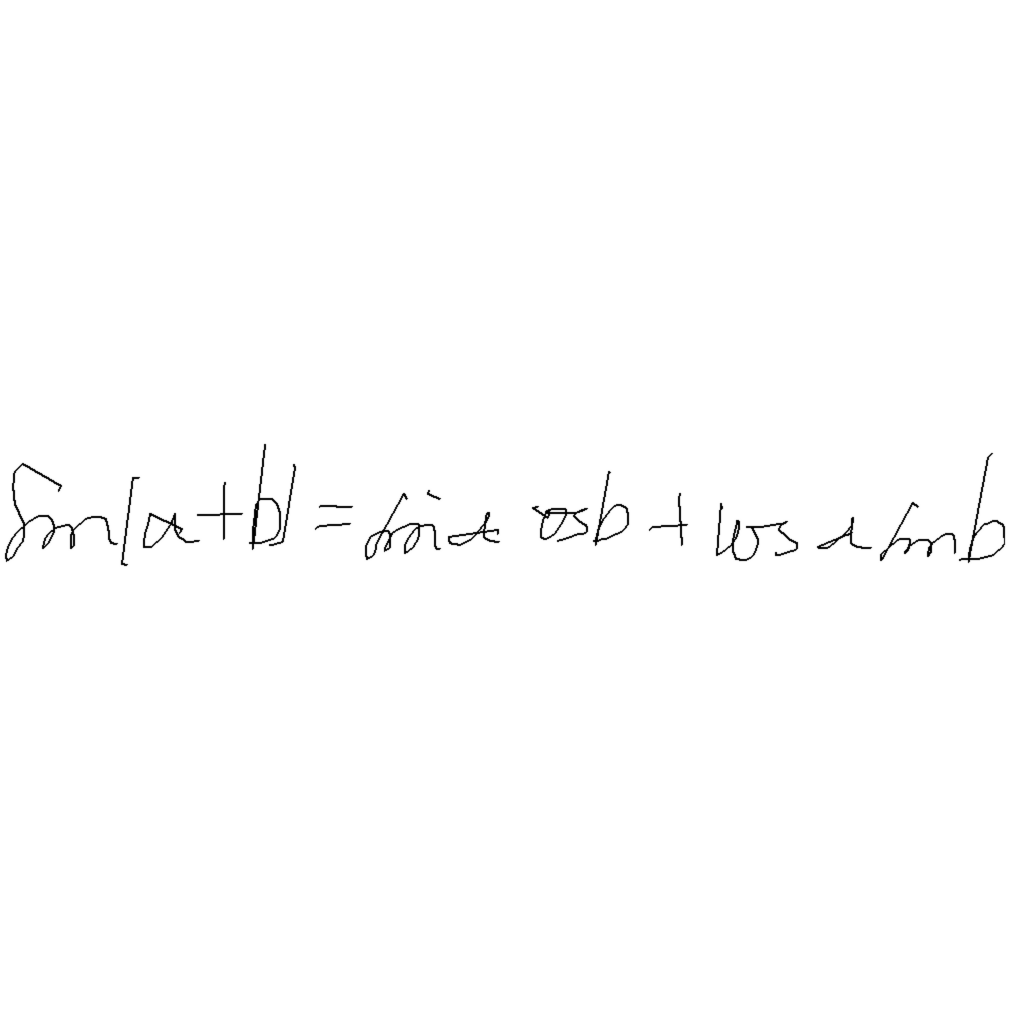 sin(a+b) = sin a cos b + cos a sin b